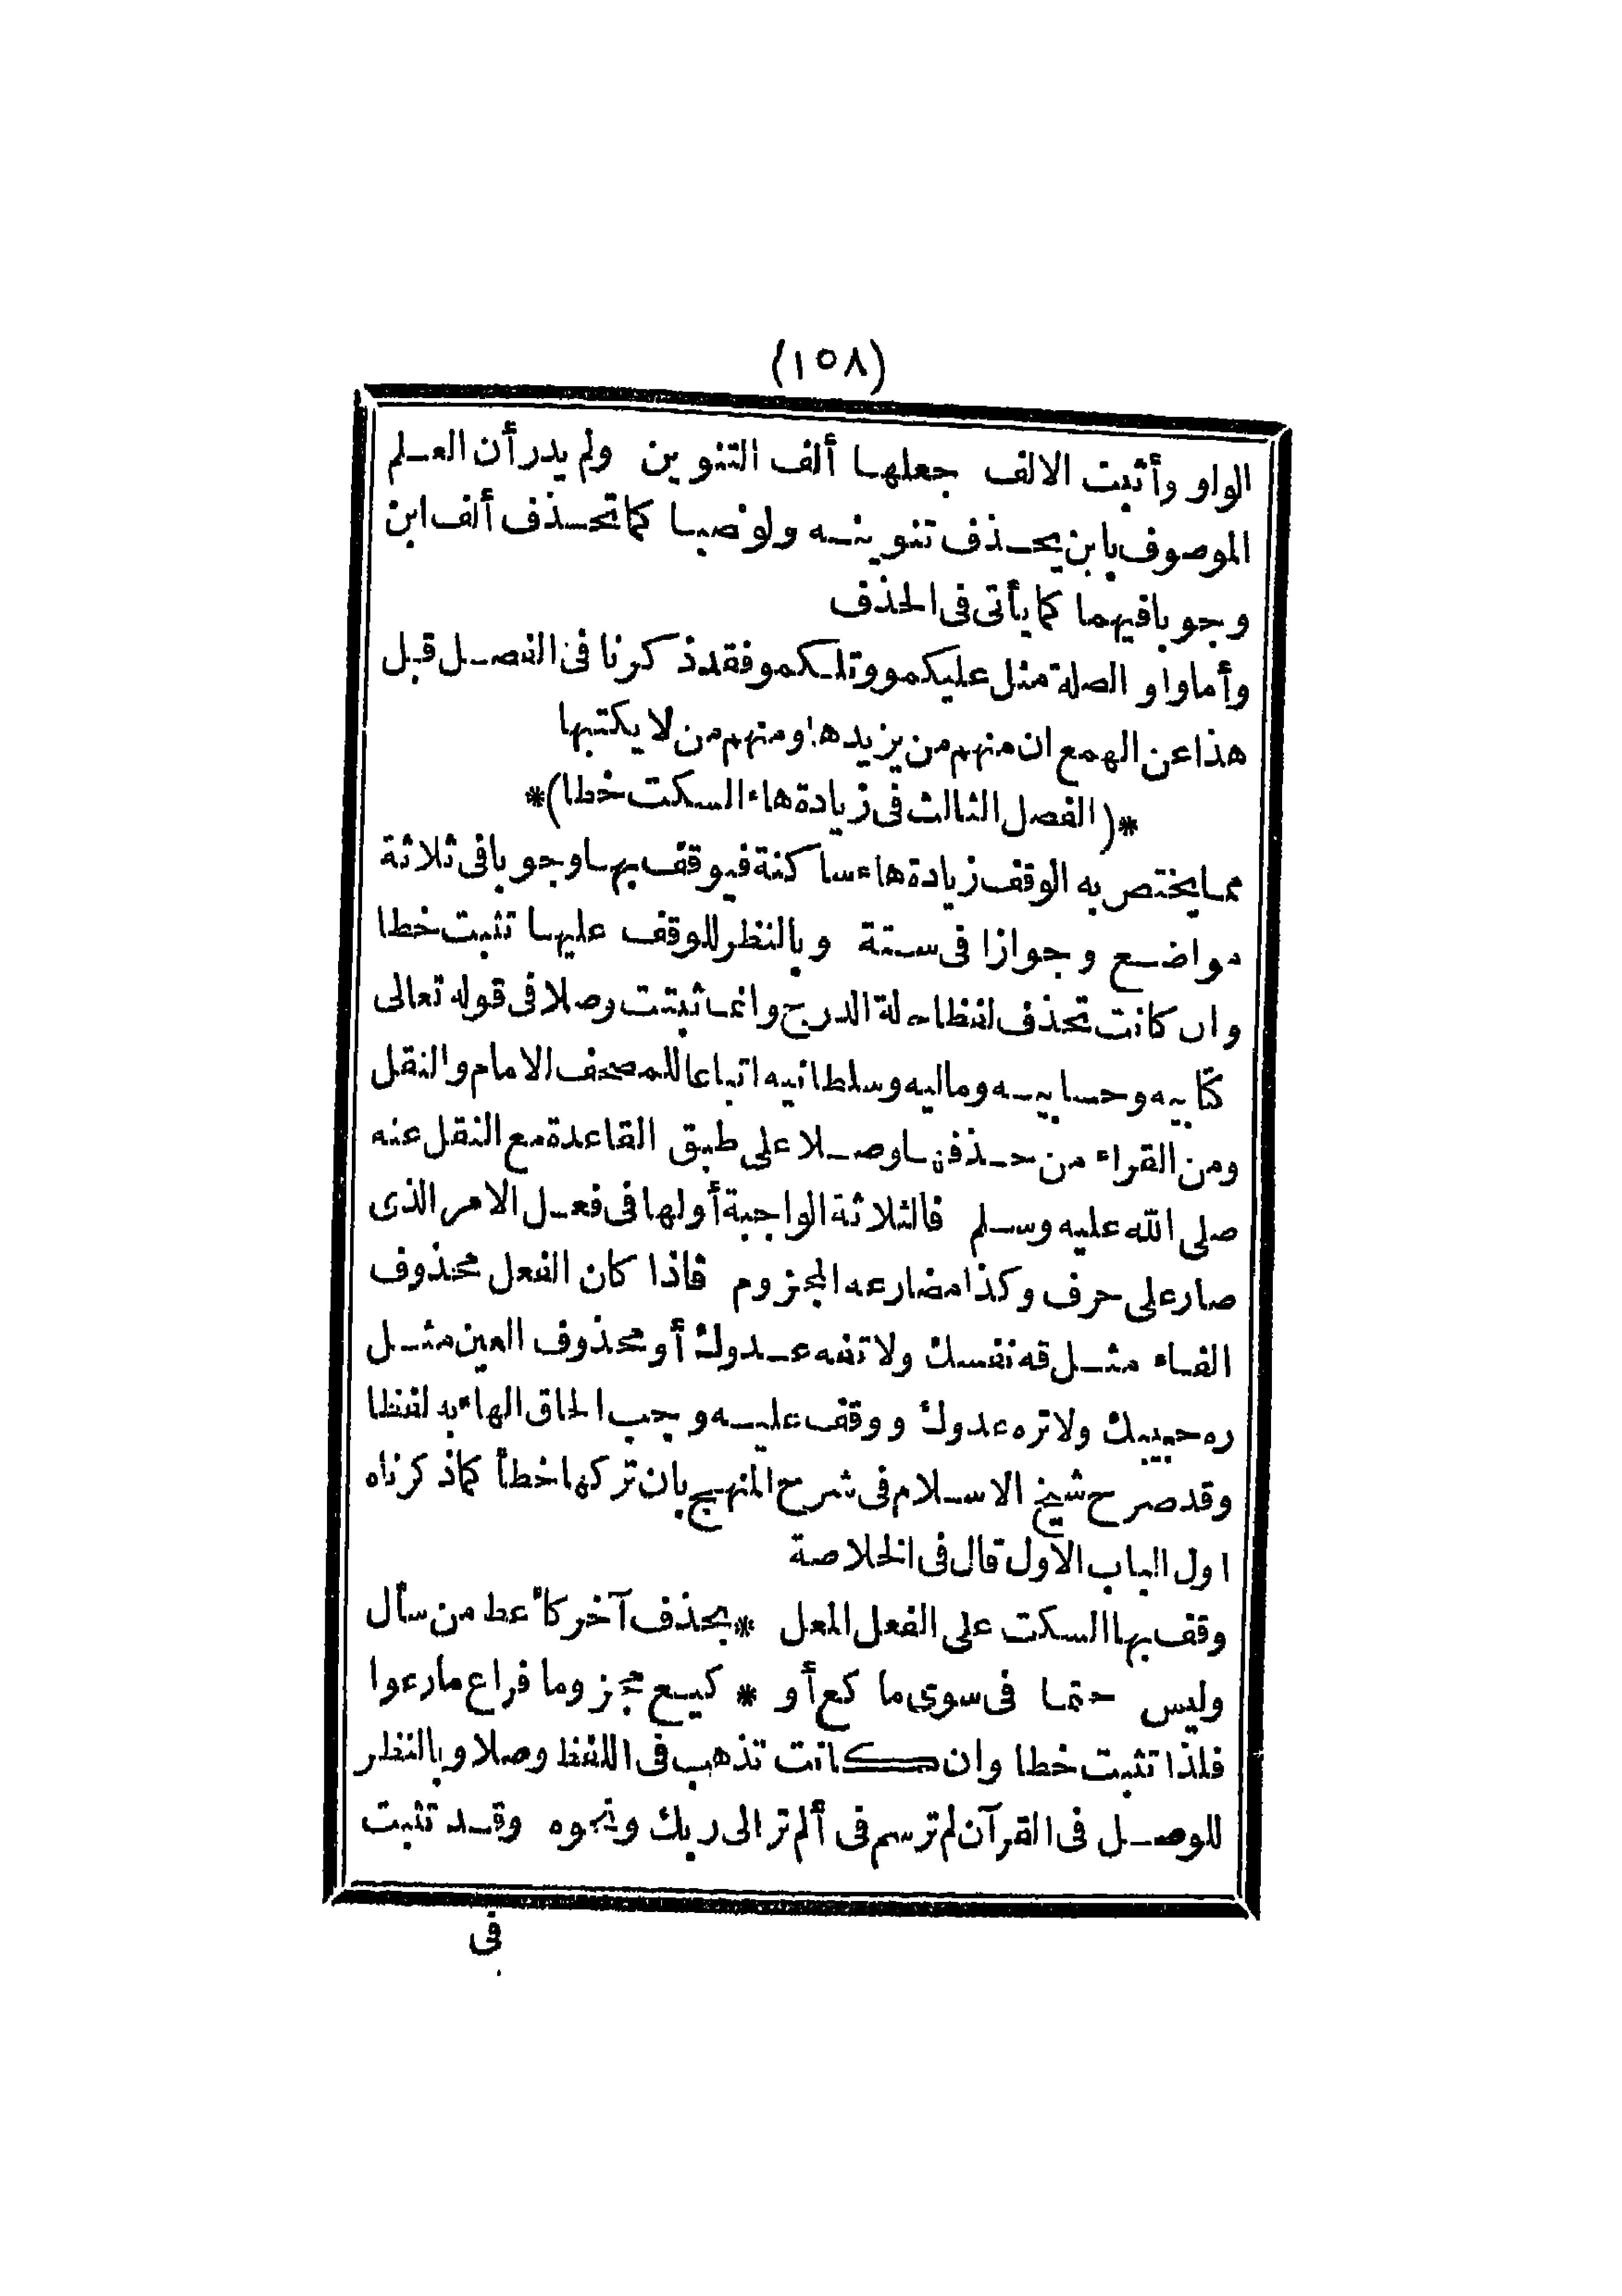 (١٥٨)
الواو وأثبت الالف جعلها ألف التنوين ولم يدر أن العلم
الموصوف بابن يحذف تنوينه ولو نصبا كما تحذف ألف ابن
وجوبا فيهما كما يأتى فى الحذف
وأما واو الصلة مثل عليكمو وتلكمو فقد ذكرنا فى الفصل قبل
هذا عن الهمع ان منهم من يزيدها ومنهم من لا يكتبها
*(الفصل الثالث فى زيادة هاء السكت خطا)*
مما يختص به الوقف زيادة هاء ساكنة فيوقف بها وجوبا فى ثلاثة
مواضع وجوازا فى ستة وبالنظر للوقف عليها تثبت خطا
وان كانت تحذف لفظا حالة الدرج وانما ثبتت وصلا فى قوله تعالى
كتابيه وحسابيه وماليه وسلطانيه اتباعا للمصحف الامام والنقل
ومن القراء من حذفها وصلا على طبق القاعدة مع النقل عنه
صلى الله عليه وسلم فالثلاثة الواجبة أولها فى فعل الامر الذى
صار على حرف وكذا مضارعه المجزوم فاذا كان الفعل محذوف
الفاء مثل قه نفسك ولا تفه عدوك أو محذوف العين مثل
ره حبيبك ولا تره عدوك ووقف عليه وجب الحاق الهاء به لفظا
وقد صرح شيخ الاسلام فى شرح المنهج بان تركها خطأ كما ذكرناه
اول الباب الاول قال فى الخلاصة
وقف بها السكت على الفعل المعل * بحذف آخر كأعط من سأل
وليس حتما فى سوى ما كع أو * كيع مجزوما فراع ما رعوا
فلذا تثبت خطا وان كانت تذهب فى اللفظ وصلا وبالنظر
للوصل فى القرآن لم ترسم فى ألم تر الى ربك ونحوه وقد تثبت
فى